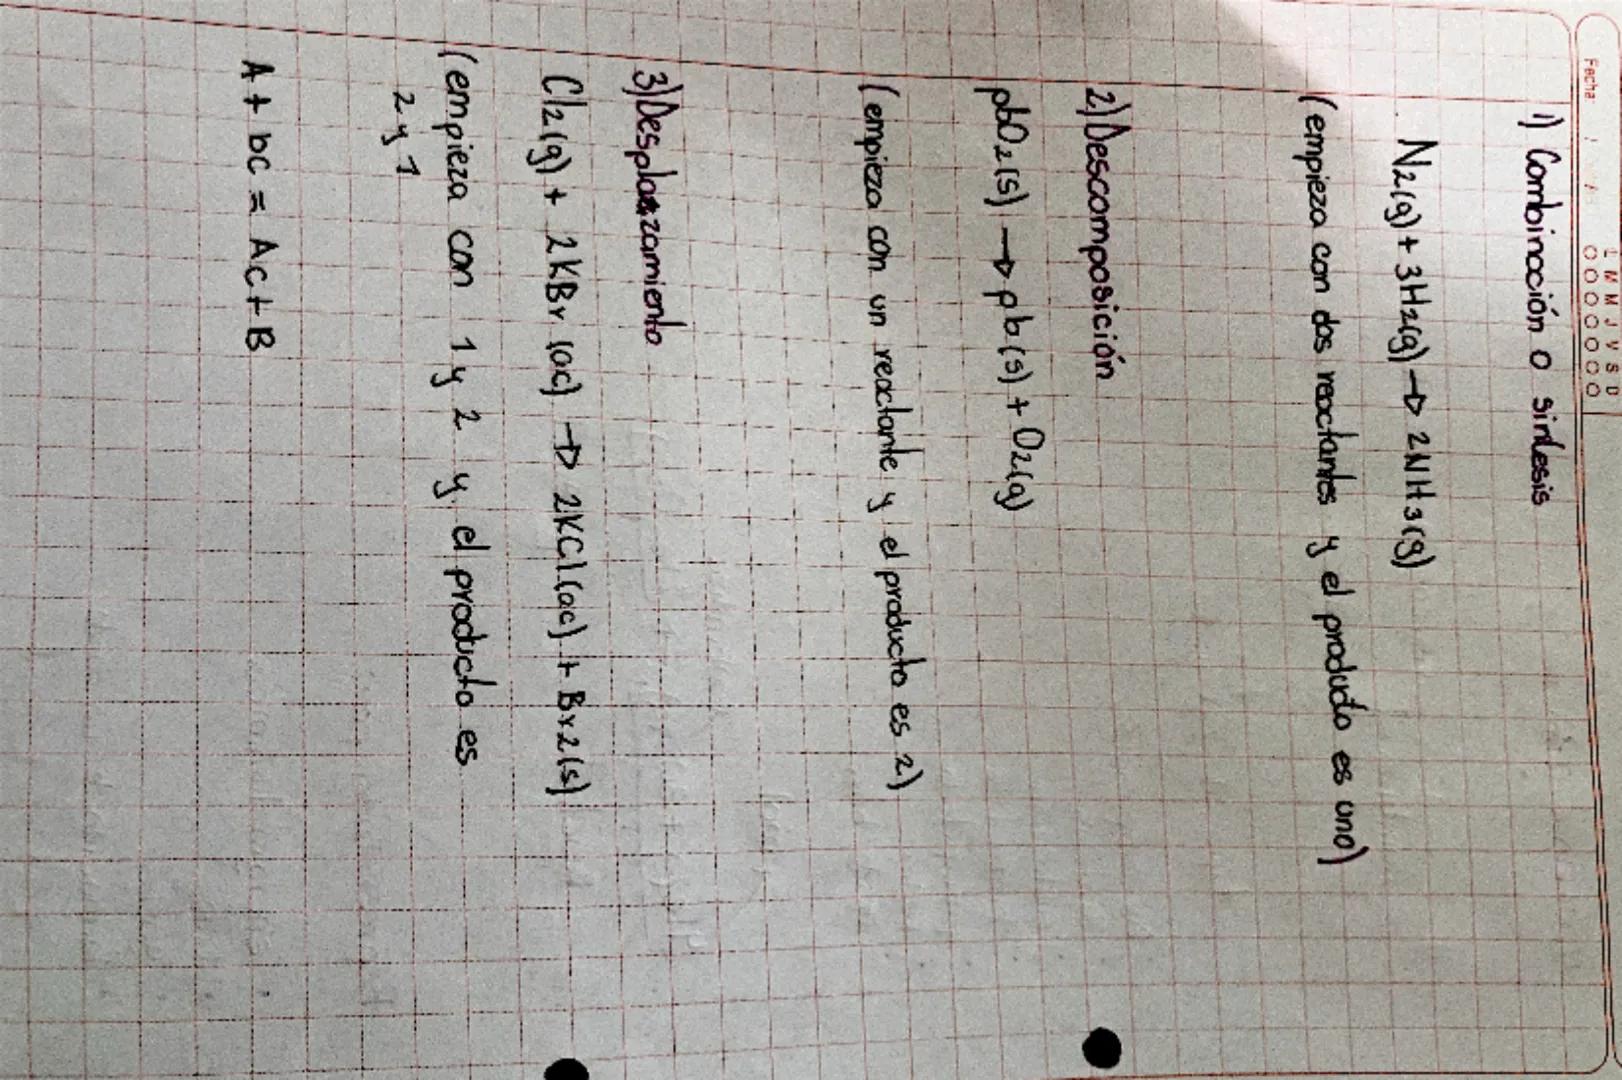 Fecha
L M M J V S D
1) Combinación o síntesis
N2(g) + 3H2(g) → 2NH3(g)
(empieza con dos reactantes y el producto es uno)
2) Descomposición
pbO2(s) → pb(s) + O2(g)
(empieza con un reactante y el producto es 2)
3) Desplazamiento
Cl2(g) + 2KBr (ac) → 2KCl(ac) + Br2(s)
(empieza con 1 y 2 y el producto es
2 y 1
A + bc = Ac + B